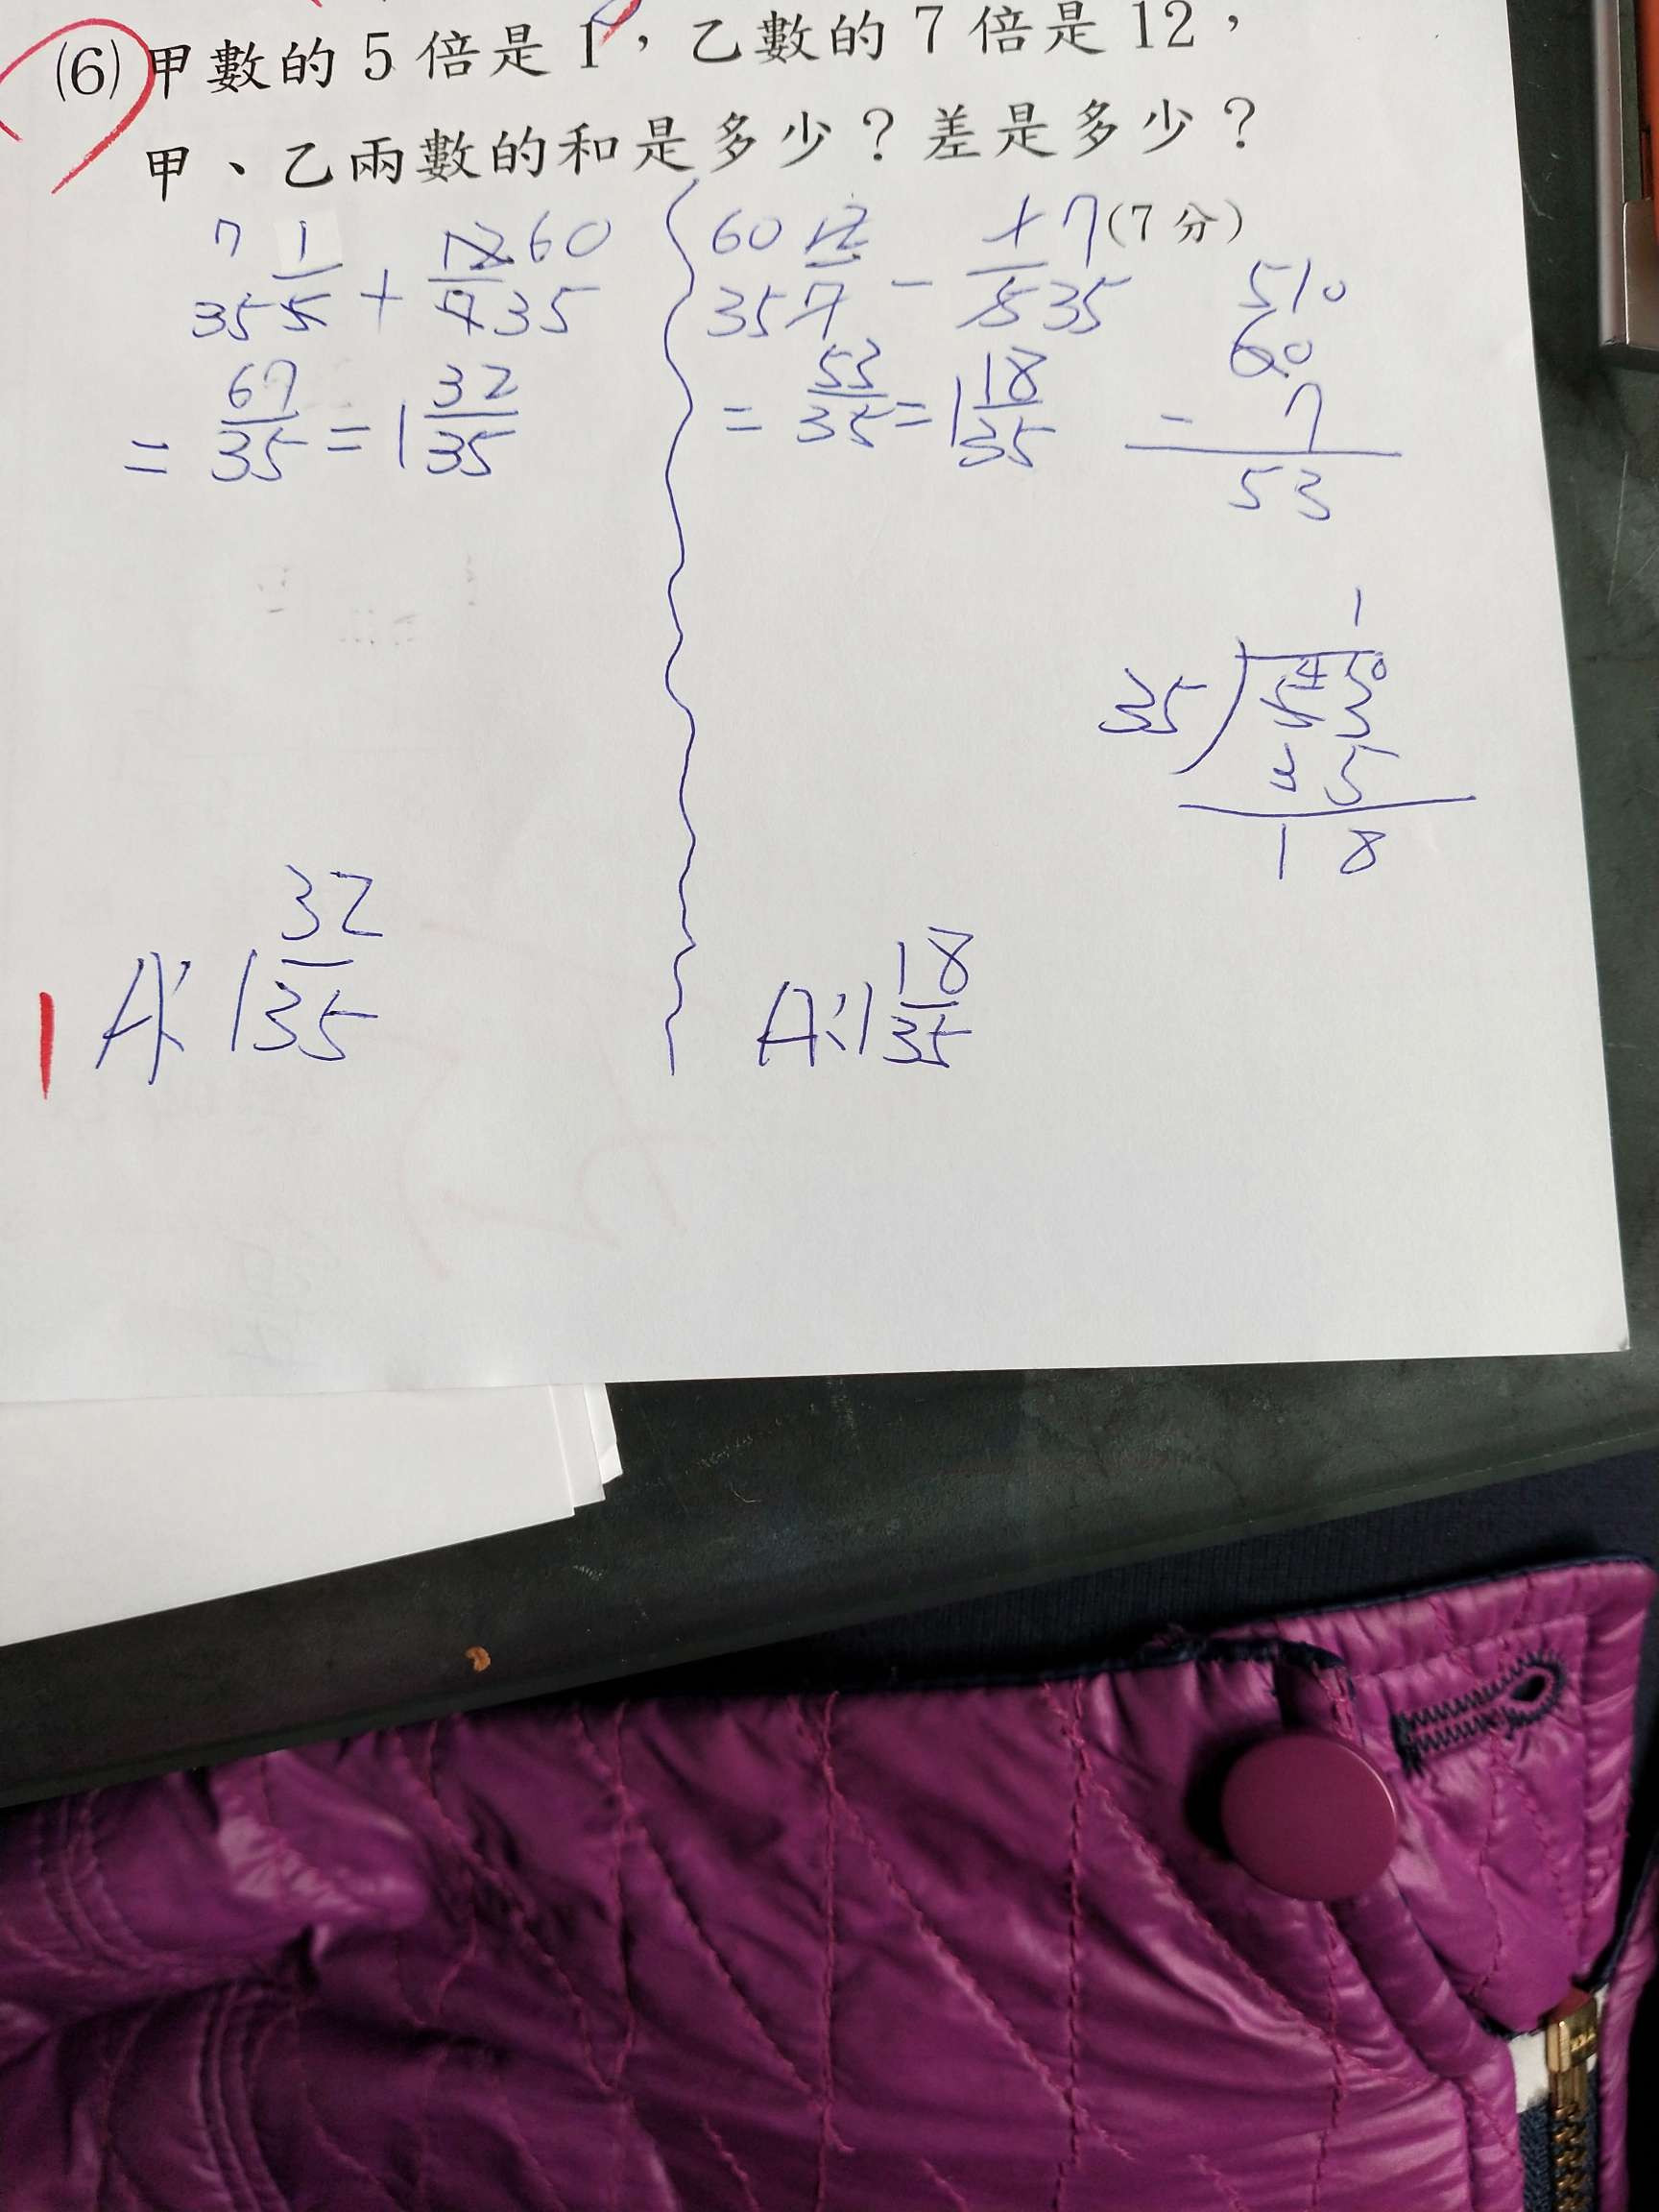 (6) 甲數的5倍是1，乙數的7倍是12，
甲、乙兩數的和是多少？差是多少？
(7分)
7 1/5 35 + 12/7 60/35
= 67/35 = 1 32/35
A: 1 32/35
60/35 12/7 - 1/5 7/35
= 53/35 = 1 18/35
A: 1 18/35
5 10
60
- 7
53
1
4 10
35 53
35
18